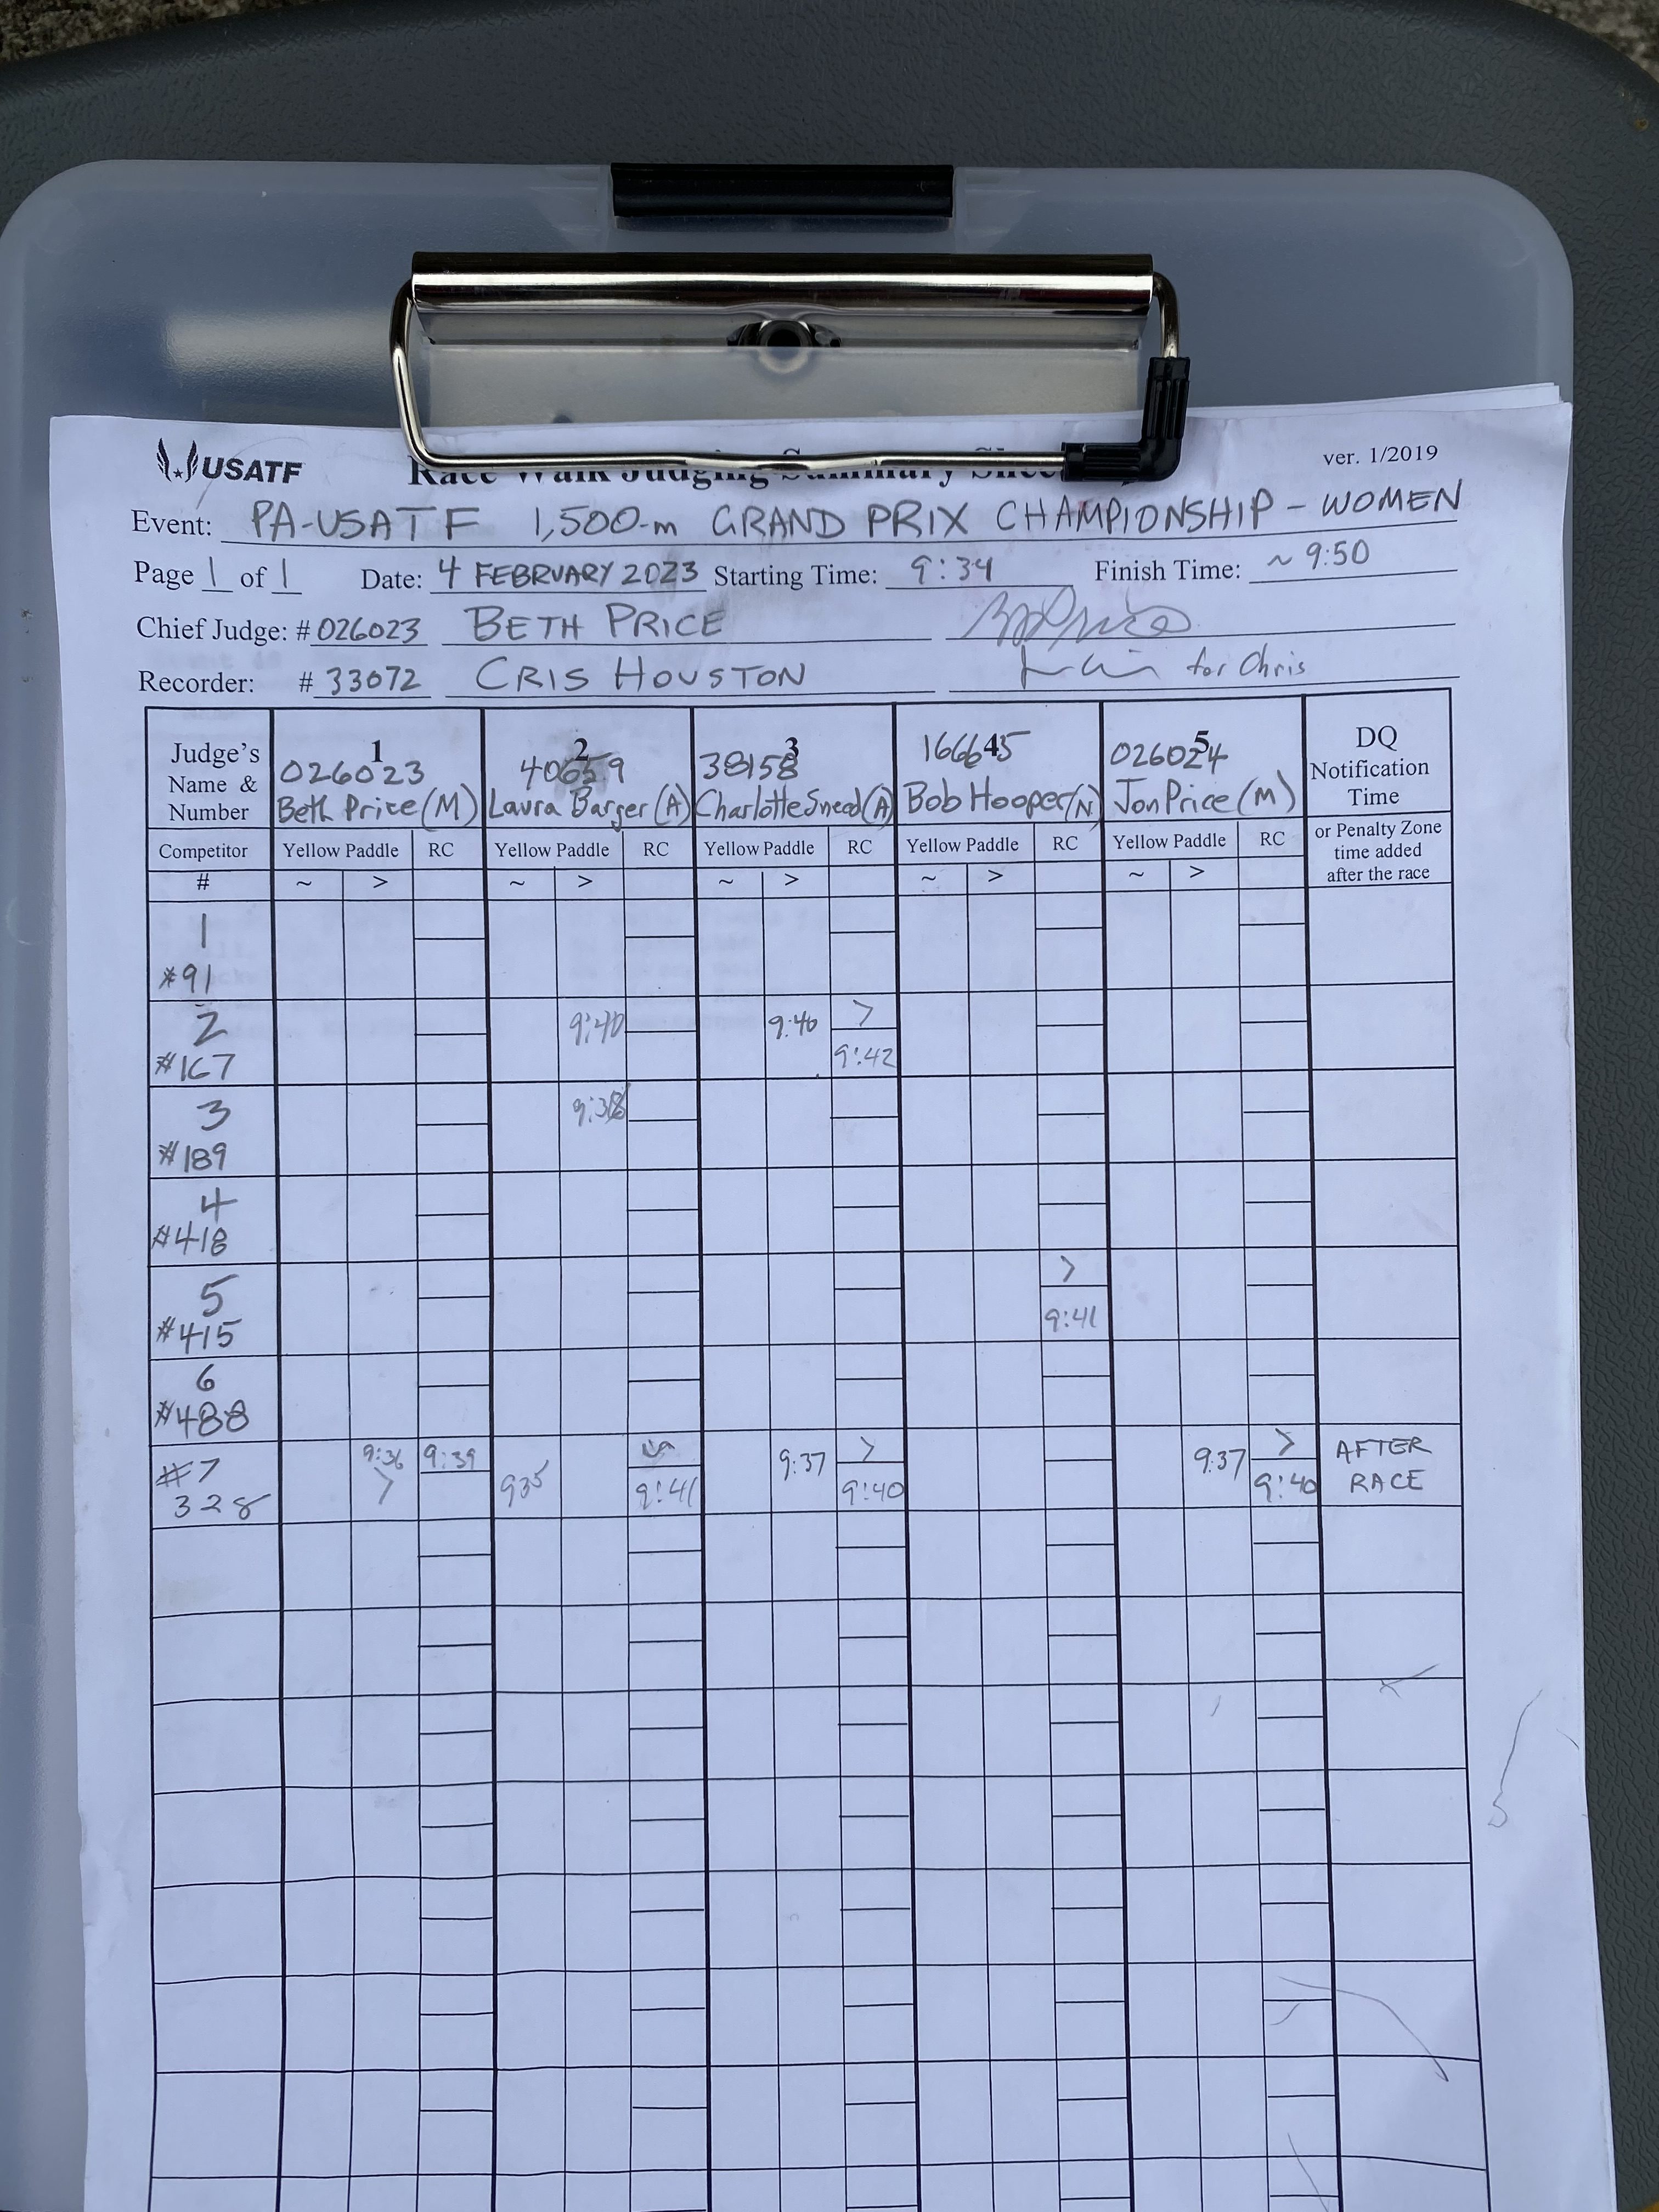 USATF
Race Walk Judging Summary Sheet
ver. 1/2019
Event: PA-USATF 1,500-m GRAND PRIX CHAMPIONSHIP - WOMEN
Page 1 of 1 Date: 4 FEBRUARY 2023 Starting Time: 9:34 Finish Time: ~ 9:50
Chief Judge: # 026023 BETH PRICE
Recorder: # 33072 CRIS HOUSTON for Chris
Judge's Name & Number
1 026023 Beth Price (M)
2 40659 Laura Barger (A)
3 38158 Charlotte Sneed (A)
4 166645 Bob Hooper (N)
5 026024 Jon Price (M)
DQ Notification Time
or Penalty Zone time added after the race
Competitor Yellow Paddle RC Yellow Paddle RC Yellow Paddle RC Yellow Paddle RC Yellow Paddle RC
# ~ > ~ > ~ > ~ > ~ >
1
#91
2 9:40 9:40 >
#167 9:42
3 9:38
#189
4
#418
5 >
#415 9:41
6
#488
#7 9:36 9:39 ~ 9:37 > 9:37 > AFTER
328 > 935 9:41 9:40 9:40 RACE